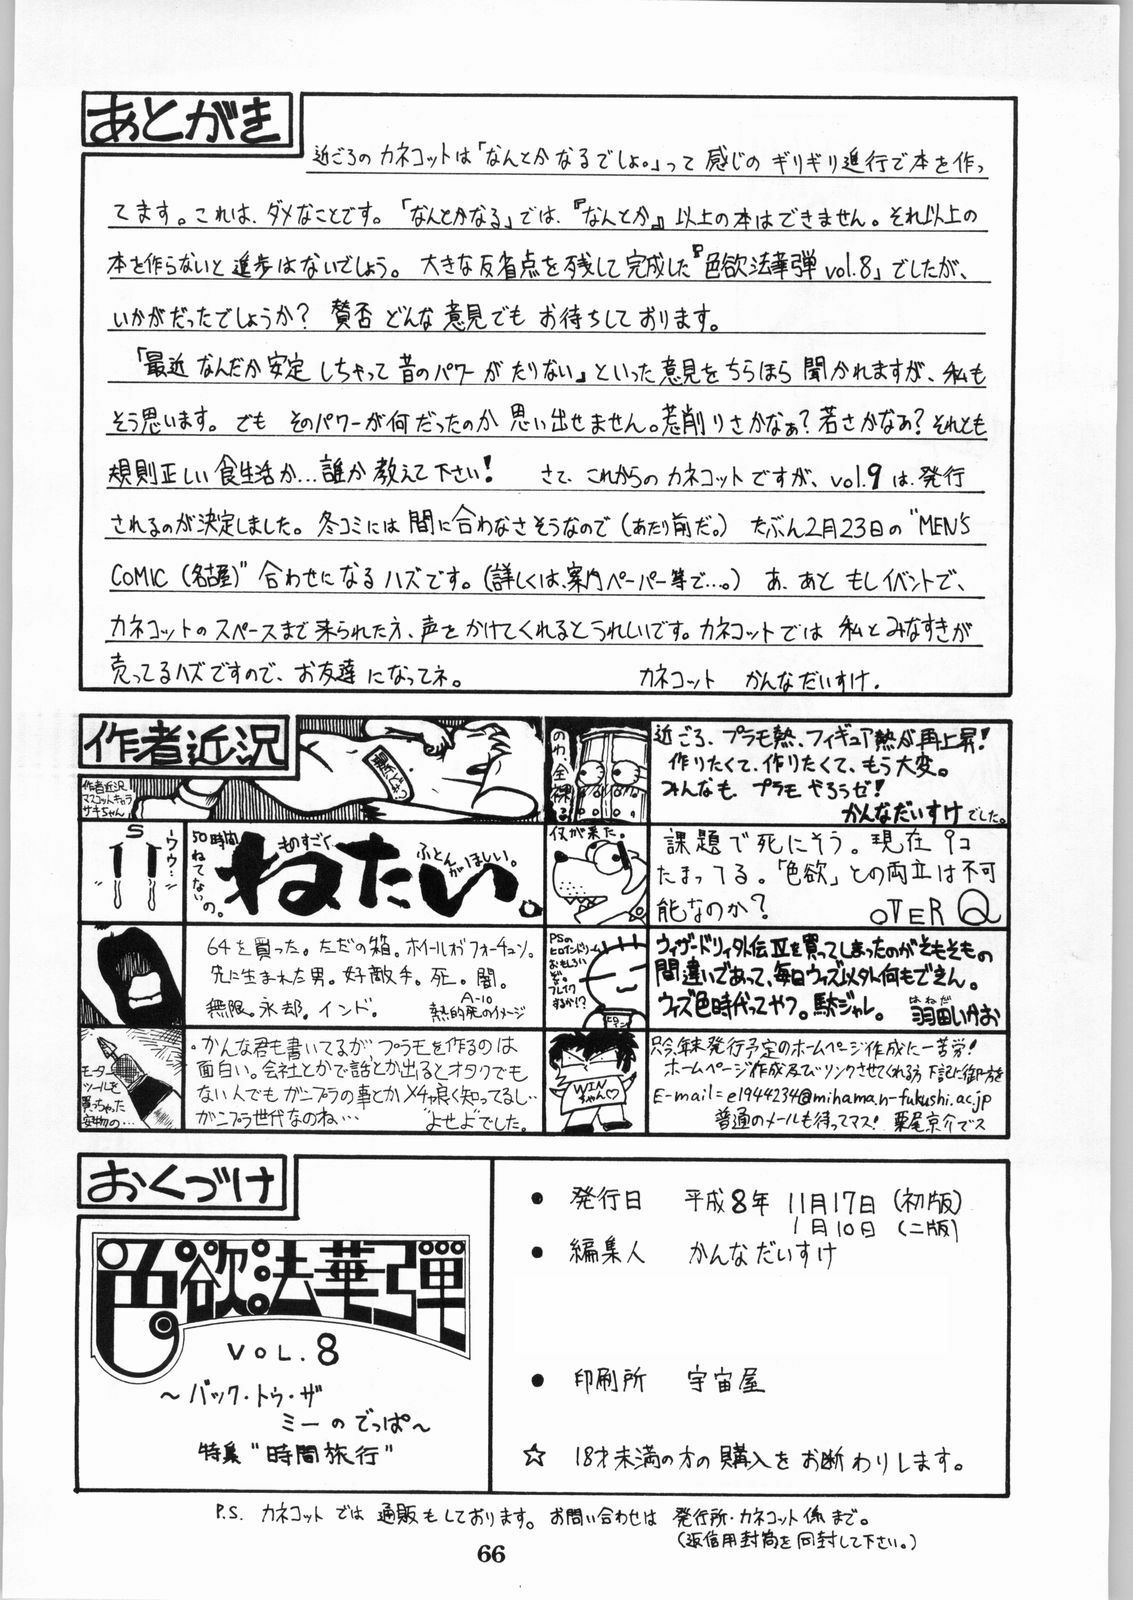 あとがき
近ごろのカネコットは「なんとかなるでしょ。」って感じのギリギリ進行で本を作っ
てます。これは、ダメなことです。「なんとかなる」では、『なんとか』以上の本はできません。それ以上の
本を作らないと進歩はないでしょう。大きな反省点を残して完成した『色欲法華弾vol.8」でしたが、
いかがだったでしょうか？ 賛否どんな意見でもお待ちしております。
「最近なんだか安定しちゃって昔のパワーがたりない」といった意見をちらほら聞かれますが、私も
そう思います。でもそのパワーが何だったのか思い出せません。荒削りさかなぁ？若さかなぁ？それとも
規則正しい食生活か…誰か教えて下さい！ さて、これからのカネコットですが、vol.9は、発行
されるのが決定しました。冬コミには間に合わなさそうなので（あたり前だ。）たぶん2月23日の"MEN'S
COMIC（名古屋）"合わせになるハズです。（詳しくは、案内ペーパー等で…。） あ、あともしイベントで、
カネコットのスペースまで来られた方、声をかけてくれるとうれしいです。カネコットでは私とみなすきが
売ってるハズですので、お友達になってネ。 カネコット かんなだいすけ.
作者近況
作者近況！
マスコットキャラ
サキちゃん
のわ、全裸る
近ごろ、プラモ熱、フィギュア熱が再上昇！
作りたくて、作りたくて、もう大変。
みんなも、プラモやろうゼ！
かんなだいすけでした。
S
ウゥ…
50時間
ねてないの。
ものすごく
ねたい。
ふとんがほしい。
何が来た。
課題で死にそう。現在9コ
たまってる。「色欲」との両立は不可
能なのか？ OVER Q
64を買った。ただの箱。ホイールオブフォーチュン。
先に生まれた男。好敵手。死。闇。
無限。永却。インド。
A-10
熱的死のイメージ
PSの
ヒロインドリーム
おもしろい
ぞ。
ブレイク
するか!?
ウィザードリィ外伝Ⅳを買ってしまったのがそもそもの
間違いであって、毎日ウィズ以外何もできん。
ウィズ色時代ってやつ。駄ジャレ。
はねだ
羽田いかお
モーター
ツールを
買っちゃった
安物の…
・かんな君も書いてるが、プラモを作るのは
面白い。会社とかで話とか出るとオタクでも
ない人でもガンプラの事とかメチャ良く知ってるし…
ガンプラ世代なのね… よせよでした。
WIN
ちゃん♡
只今、年末発行予定のホームページ作成に一苦労！
ホームページ作成及びリンクさせてくれる方下記に御一方を
E-mail=e1944234@mihama.n-fukushi.ac.jp
普通のメールも待ってマス！ 栗尾京介でス
おくづけ
色欲法華弾
VOL.8
～バック・トゥ・ザ
ミーのでっぱ～
特集"時間旅行"
● 発行日 平成8年 11月17日（初版）
1月10日（二版）
● 編集人 かんなだいすけ
● 印刷所 宇宙屋
☆ 18才未満の方の購入をお断わりします。
P.S. カネコットでは通販もしております。お問い合わせは 発行所・カネコット係まで。
（返信用封筒を同封して下さい。）
66